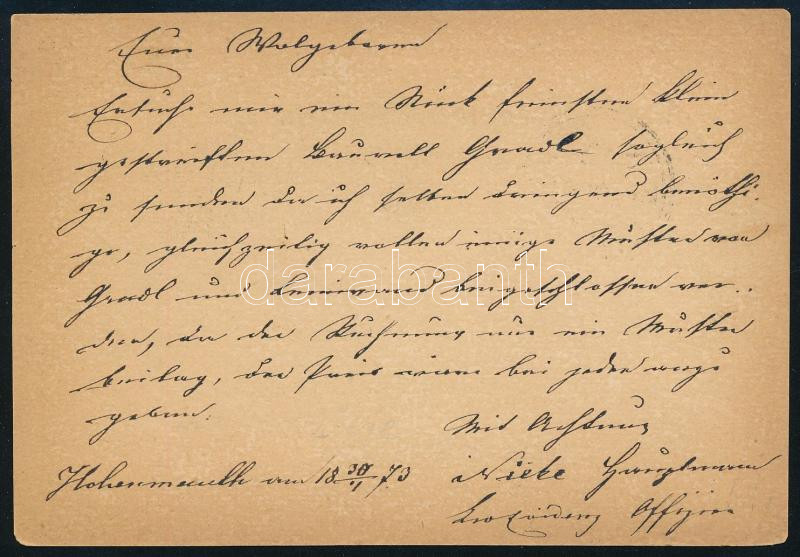 Euer Wolgeboren
Ersuche mir ein Stück feinsten klein
gestreiften Gradl sogleich
zu senden da ich selben dringend benöthi-
ge, gleichzeitig wollen einige Muster von
Gradl und Leinwand beigeschlossen wer-
den, da der Rechnung nur ein Muster
beilag, der Preis wäre bei jeden anzu
geben.
Mit Achtung
Hohenmauth am 18 30/11 73 Hauptmann
Offizier
darabanth